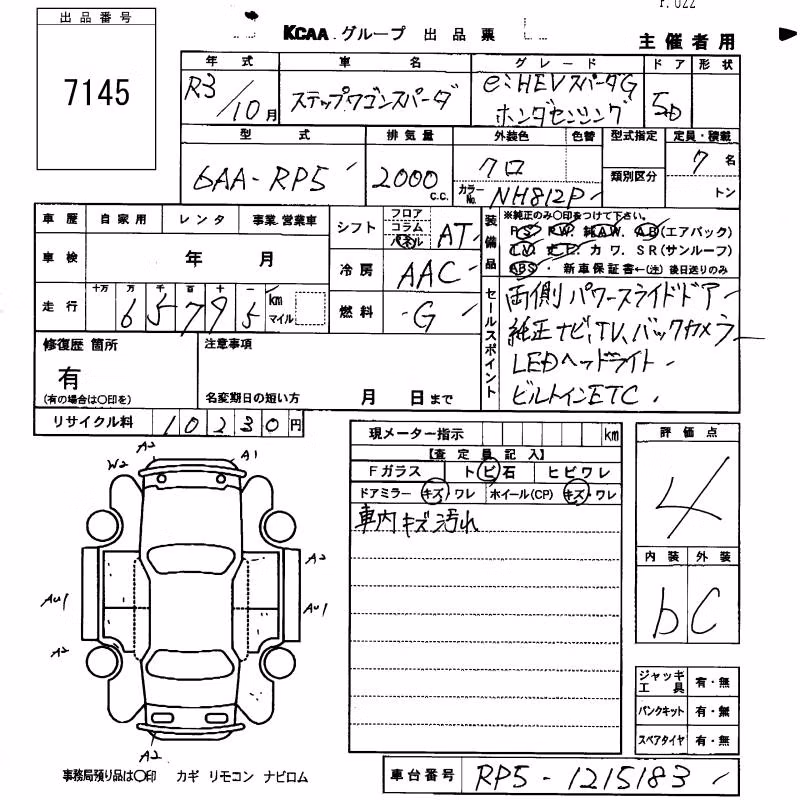 出品番号
7145
KCAA グループ 出品票
主催者用
年式 車名 グレード ドア 形状
R3/10月 ステップワゴンスパーダ e:HEVスパーダG ホンダセンシング 5D
型式 排気量 外装色 色替 型式指定 定員・積載
6AA-RP5 2000 c.c. クロ 7名
カラーNo. NH812P 類別区分 トン
車歴 自家用 レンタ 事業.営業車
車検 年 月
走行 十万 万 千 百 十 一
65795 km マイル
シフト フロア コラム パネル AT
冷房 AAC
燃料 G
装備品 ※純正のみ○印をつけて下さい。
P.S. P.W. 純A.W. A.B(エアバック)
T.V. ナビ. カワ. S R(サンルーフ)
ABS・新車保証書←(注)後日送りのみ
セールスポイント
両側パワースライドドア
純正ナビ、TV、バックカメラ
LEDヘッドライト
ビルトインETC
修復歴 箇所
有
(有の場合は○印を)
注意事項
名変期日の短い方 月 日まで
リサイクル料 10230円
現メーター指示 km
【査定員記入】
Fガラス トビ石 ヒビワレ
ドアミラー キズ・ワレ ホイール(CP) キズ・ワレ
車内キズ汚れ
評価点
4
内装 外装
b C
A2
W2
A1
A2
AU1
AU1
A2
A2
A2
ジャッキ工具 有・無
パンクキット 有・無
スペアタイヤ 有・無
事務局預り品は○印 カギ リモコン ナビロム
車台番号 RP5-1215183